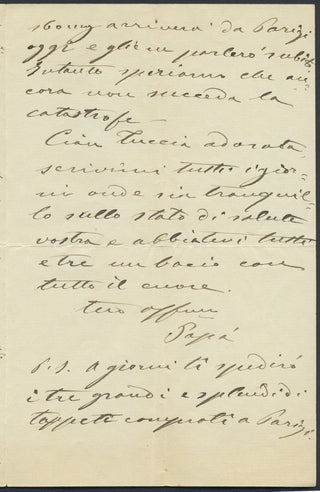 arriverà da Parigi
oggi e gliene parlerò subito
Intanto speriamo che an=
cora non succeda la
catastrofe —
Ciao Tuccia adorata,
scrivimi tutti i gior=
ni onde sia tranquil=
lo sullo stato di salute
vostra e abbiatevi tutti
e tre un bacio con
tutto il cuore.
tuo affmo
Papà
P.S. A giorni ti spedirò
i tre grandi e splendidi
tappeti comprati a Parigi.